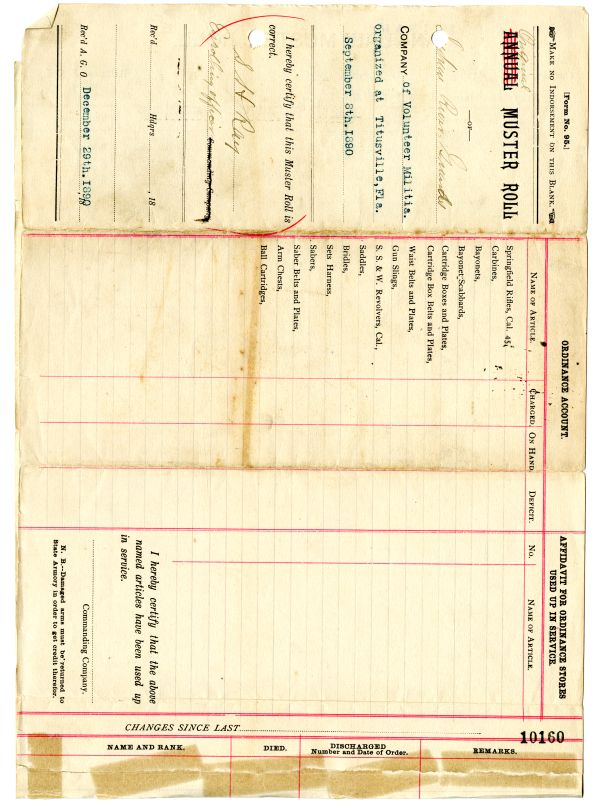 [Form No. 95.]
MAKE NO INDORSEMENT ON THIS BLANK.
Original
ANNUAL MUSTER ROLL
—OF—
Indian River Guards
COMPANY of Volunteer Militia.
organized at Titusville, Fla.
September 8th. 1890
I hereby certify that this Muster Roll is
correct.
Commanding Company.
Rec'd Hdqrs , 18
Rec'd A. G. O December 29th. 1890, 18
ORDINANCE ACCOUNT.
NAME OF ARTICLE. CHARGED. ON HAND. DEFICIT.
Springfield Rifles, Cal. 45,
Carbines,
Bayonets,
Bayonet Scabbards,
Cartridge Boxes and Plates,
Cartridge Box Belts and Plates,
Waist Belts and Plates,
Gun Slings,
S. S. & W. Revolvers, Cal.,
Saddles,
Bridles,
Sets Harness,
Sabers,
Saber Belts and Plates,
Arm Chests,
Ball Cartridges,
AFFIDAVIT FOR ORDINANCE STORES
USED UP IN SERVICE.
No. NAME OF ARTICLE.
I hereby certify that the above
named articles have been used up
in service.
Commanding Company.
N. B.—Damaged arms must be returned to
State Armory in order to get credit therefor.
10160
CHANGES SINCE LAST
NAME AND RANK. DIED. DISCHARGED REMARKS.
Number and Date of Order.